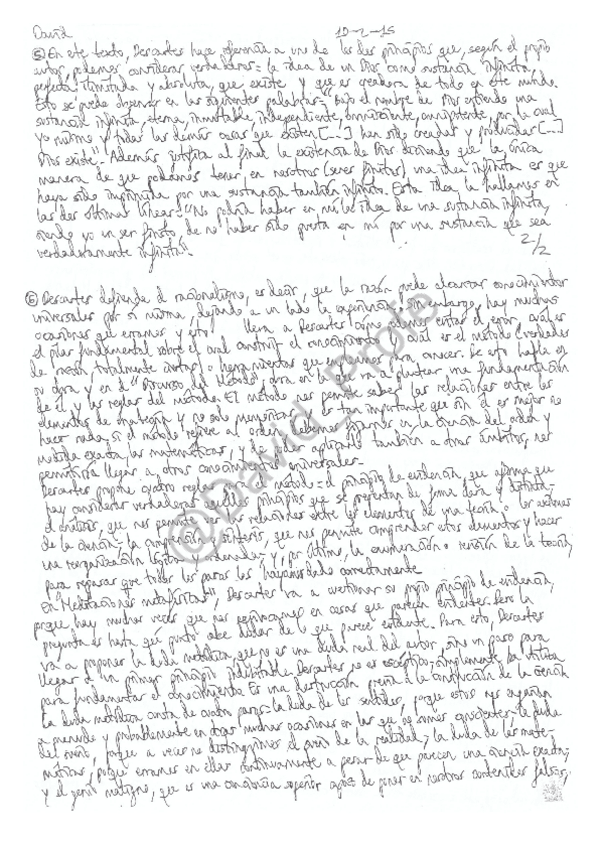 David 10-2-15
⑤ En este texto, Descartes hace referencia a uno de los dos principios que, según el propio
autor, podemos considerar verdaderos: la idea de un Dios como sustancia infinita,
perfecta, ilimitada y absoluta, que existe y que es creadora de todo en este mundo.
Esto se puede observar en las siguientes palabras: "Bajo el nombre de Dios entiendo una
sustancia infinita, eterna, inmutable, independiente, omnisciente, omnipotente, por la cual
yo mismo y todas las demás cosas que existen [...] han sido creadas y producidas [...]
Dios existe". Además justifica al final la existencia de Dios diciendo que la única
manera de que podamos tener, en nosotros (seres finitos) una idea infinita es que
haya sido imprimida por una sustancia también infinita. Esta idea la hallamos en
las dos últimas líneas: "No podría haber en mí la idea de una sustancia infinita,
siendo yo un ser finito, de no haber sido puesta en mí por una sustancia que sea
verdaderamente infinita".
2/2
⑥ Descartes defiende el racionalismo, es decir, que la razón puede alcanzar conocimientos
universales por sí misma, dejando a un lado la experiencia; sin embargo, hay muchas
ocasiones que erramos y esto lleva a Descartes cómo podemos evitar el error, cuál es
el pilar fundamental sobre el cual construir el conocimiento y cuál es el método (verdades
de razón totalmente ciertas) o herramientas que empleamos para conocer. De esto habla en
su obra y en el "Discurso del Método", obra en la que va a plantear una fundamentación
de él y las reglas del método. El método nos permite saber las relaciones entre los
elementos de una teoría y no solo memorizar y es tan importante que sin él es mejor no
hacer nada. Si el método refiere al orden, debemos fijarnos en la ciencia del orden y
medida exacta, las matemáticas, y de poder aplicarlo también a otros ámbitos, nos
permitiría llegar a otros conocimientos universales.
Descartes propone cuatro reglas para el método: el principio de evidencia, que afirma que
hay considerar verdaderos aquellos principios que se presentan de forma clara y distinta;
el análisis, que nos permite ver las relaciones entre los elementos de una teoría o los
de la ciencia; la comprensión o síntesis, que nos permite comprender estos elementos y hacer
una reorganización lógica y ordenada; y, por último, la enumeración o revisión de la teoría,
para repasar que todos los pasos los hayamos dado correctamente.
En "Meditaciones metafísicas", Descartes va a cuestionar su propio principio de evidencia,
porque hay muchas veces que nos equivocamos en cosas que parecen evidentes. Pero la
pregunta es hasta qué punto cabe dudar de lo que parece evidente. Para esto, Descartes
va a proponer la duda metódica, que no es una duda real del autor sino un paso para
llegar a un primer principio indubitable. Descartes no es escéptico; simplemente la utiliza
para fundamentar el conocimiento. Es una destrucción previa a la construcción de la ciencia.
La duda metódica consta de cuatro pasos: la duda de los sentidos, porque estos nos engañan
a menudo y probablemente en otras muchas ocasiones en las que no somos conscientes; la duda
del sueño, porque a veces no distinguimos el sueño de la realidad; la duda de las mate-
máticas, porque erramos en ellas continuamente a pesar de que parecen una ciencia exacta;
y el genio maligno, que es una conciencia superior capaz de poner en nosotros contenidos falsos,
@David_Profe